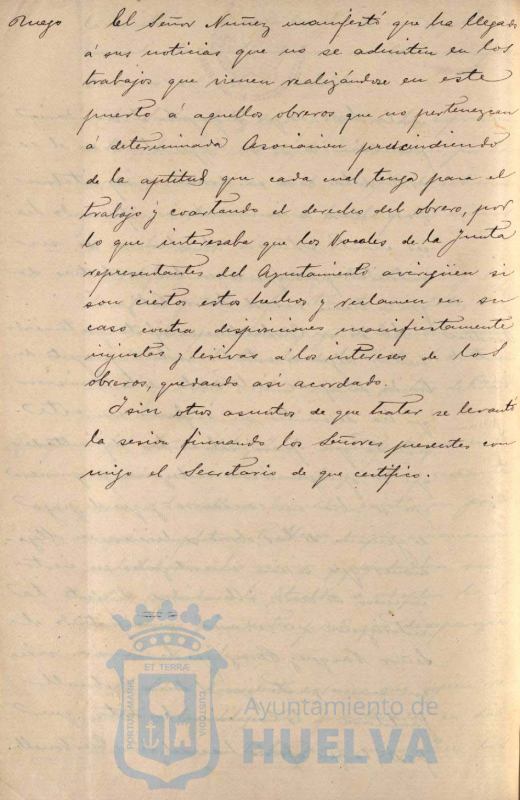 Ruego El Señor Nuñez manifestó que ha llegado
á sus noticias que no se admiten en los
trabajos que vienen realizándose en este
puerto á aquellos obreros que no pertenezcan
á determinada Asociacion prescindiendo
de la aptitud que cada cual tenga para el
trabajo y coartando el derecho del obrero, por
lo que interesaba que los Vocales de la Junta
representantes del Ayuntamiento averigüen si
son ciertos estos hechos y reclamen en su
caso contra disposiciones manifiestamente
injustas y lesivas á los intereses de los
obreros, quedando así acordado.
Y sin otros asuntos de que tratar se levantó
la sesion firmando los Señores presentes con
migo el Secretario de que certifico.
ET TERRÆ
PORTUS MARIS
CUSTODIA
Ayuntamiento de
HUELVA